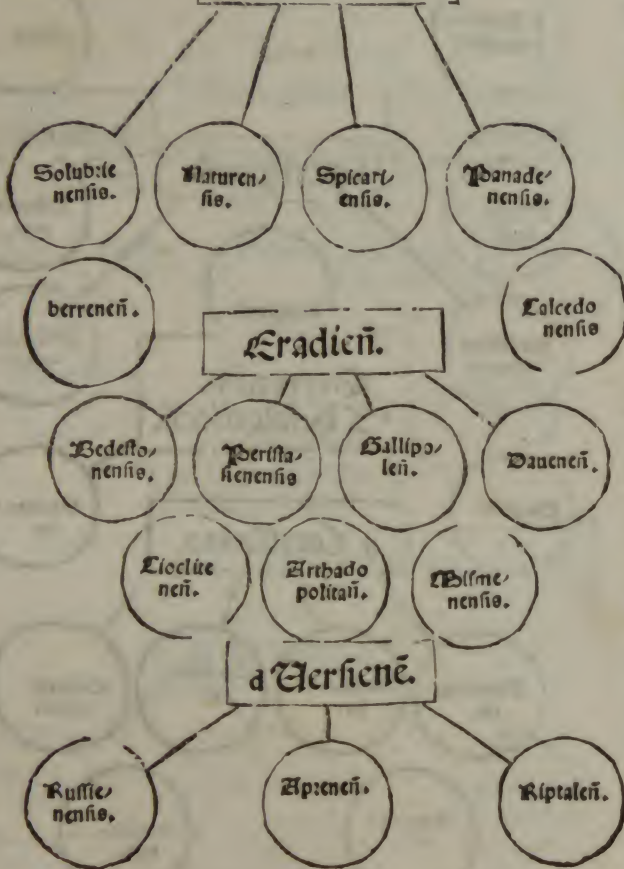 Solubrie
nensis.
Naturen,
sis.
Spicari,
ensis.
Panade,
nensis.
berreneñ.
Eradieñ.
Calcedo
nensis
Bedesto,
nensis.
Perista,
sienensis
Gallipo,
leñ.
Daueneñ.
Lioclite
neñ.
Arthado
politañ.
Misme,
nensis.
d Uersienē.
Russie,
nensis.
Apreneñ.
Riptaleñ.